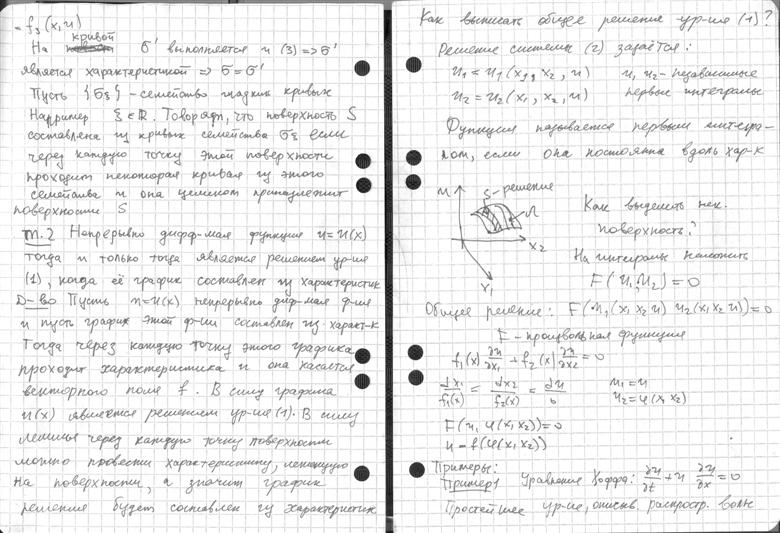 = f₃(x, u)
кривой
На σ' выполняется и (3) => σ'
является характеристикой => σ = σ'
Пусть {σ_ξ} - семейство гладких кривых
Например ξ ∈ R. Говорят, что поверхность S
составлена из кривых семейства σ_ξ если
через каждую точку этой поверхности
проходит некоторая кривая из этого
семейства и она целиком принадлежит
поверхности S
Т.2 Непрерывно дифф-мая функция u = u(x)
тогда и только тогда является решением ур-ия
(1), когда её график составлен из характеристик
Д-во Пусть u = u(x) непрерывно диф-мая ф-ия
и пусть график этой ф-ии составлен из характ-к
Тогда через каждую точку этого графика
проходит характеристика и она касается
векторного поля f. В силу графика
u(x) является решением ур-ия (1). В силу
леммы через каждую точку поверхности
можно провести характеристику, лежащую
на поверхности, а значит график
решения будет составлен из характеристик
Как выписать общее решение ур-ия (1)?
Решение системы (2) задаётся:
u₁ = u₁(x₁, x₂, u) u₁, u₂ - независимые
u₂ = u₂(x₁, x₂, u) первые интегралы
Функция называется первым интегра-
лом, если она постоянна вдоль хар-к
u S - решение
Как выделить нек.
поверхность?
x₂
На интегралы наложить
x₁
F(u₁, u₂) = 0
Общее решение: F(u₁(x₁ x₂ u) u₂(x₁ x₂ u)) = 0
F - произвольная функция
f₁(x) ∂u/∂x₁ + f₂(x) ∂u/∂x₂ = 0
dx₁/f₁(x) = dx₂/f₂(x) = du/0 u₁ = u
u₂ = φ(x₁ x₂)
F(u, φ(x₁ x₂)) = 0
u = f(φ(x₁ x₂))
Примеры:
Пример 1 Уравнение Хопфа: ∂u/∂t + u ∂u/∂x = 0
Простейшее ур-ие, описыв. распростр. волн